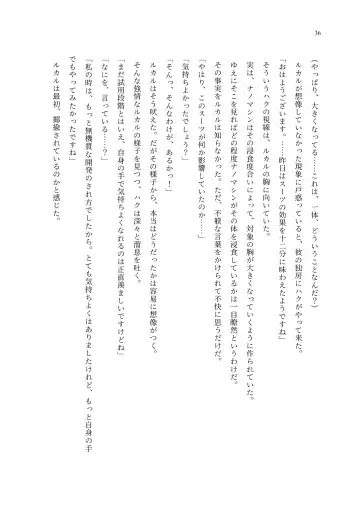 36
(やっぱり、大きくなってる……これは、一体、どういうことなんだ?)
ルカルが想像していなかった現象に戸惑っていると、彼の独房にハクがやって来た。
「おはようございます。……昨日はスーツの効果を十二分に味わえたようですね」
そういうハクの視線は、ルカルの胸に向いていた。
実は、ナノマシンはその浸食度合いによって、対象の胸が大きくなっていくように作られていた。
ゆえにそこを見ればどの程度ナノマシンがその体を浸食しているかは一目瞭然というわけだ。
その事実をルカルは知らなかった。ただ、不躾な言葉をかけられて不快に思うだけだ。
「やはり、このスーツが何か影響していたのか……」
「気持ちよかったでしょう?」
「そんっ、そんなわけが、あるかっ!」
ルカルはそう吠えた。だがその様子から、本当はどうだったかは容易に想像がつく。
そんな強情なルカルの様子を見つつ、ハクは深々と溜息を吐く。
「まだ試用段階とはいえ、自身の手で気持ちよくなれるのは正直羨ましいですけどね」
「なにを、言っている……?」
「私の時は、もっと無機質な開発のされ方でしたから。とても気持ちよくはありましたけれど、もっと自身の手
でもやってみたかったですね」
ルカルは最初、揶揄されているのかと感じた。